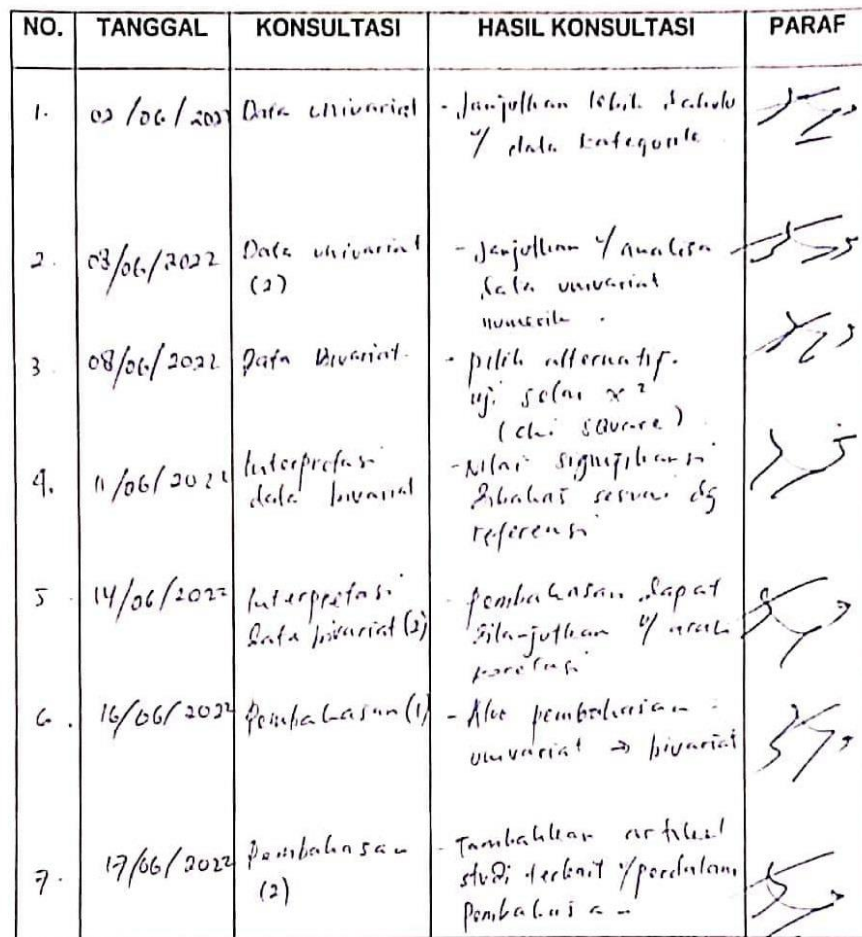 NO. TANGGAL KONSULTASI HASIL KONSULTASI PARAF
1. 02/06/2022 Data univariat - Lanjutkan lebih dahulu
u/ data kategorik
2. 03/06/2022 Data univariat - Lanjutkan u/ analisa
(2) data univariat
numerik.
3. 08/06/2022 Data Bivariat. - pilih alternatif
uji selain x²
(chi square)
4. 11/06/2022 Interpretasi - Nilai signifikansi
data bivariat dibahas sesuai dg
referensi
5 14/06/2022 Interpretasi - pembahasan dapat
data bivariat (2) dilanjutkan u/ arah
korelasi
6. 16/06/2022 Pembahasan (1) - Alur pembahasan :
univariat → bivariat
7. 17/06/2022 Pembahasan - Tambahkan artikel
(2) studi terkait u/ perdalam
Pembahasan